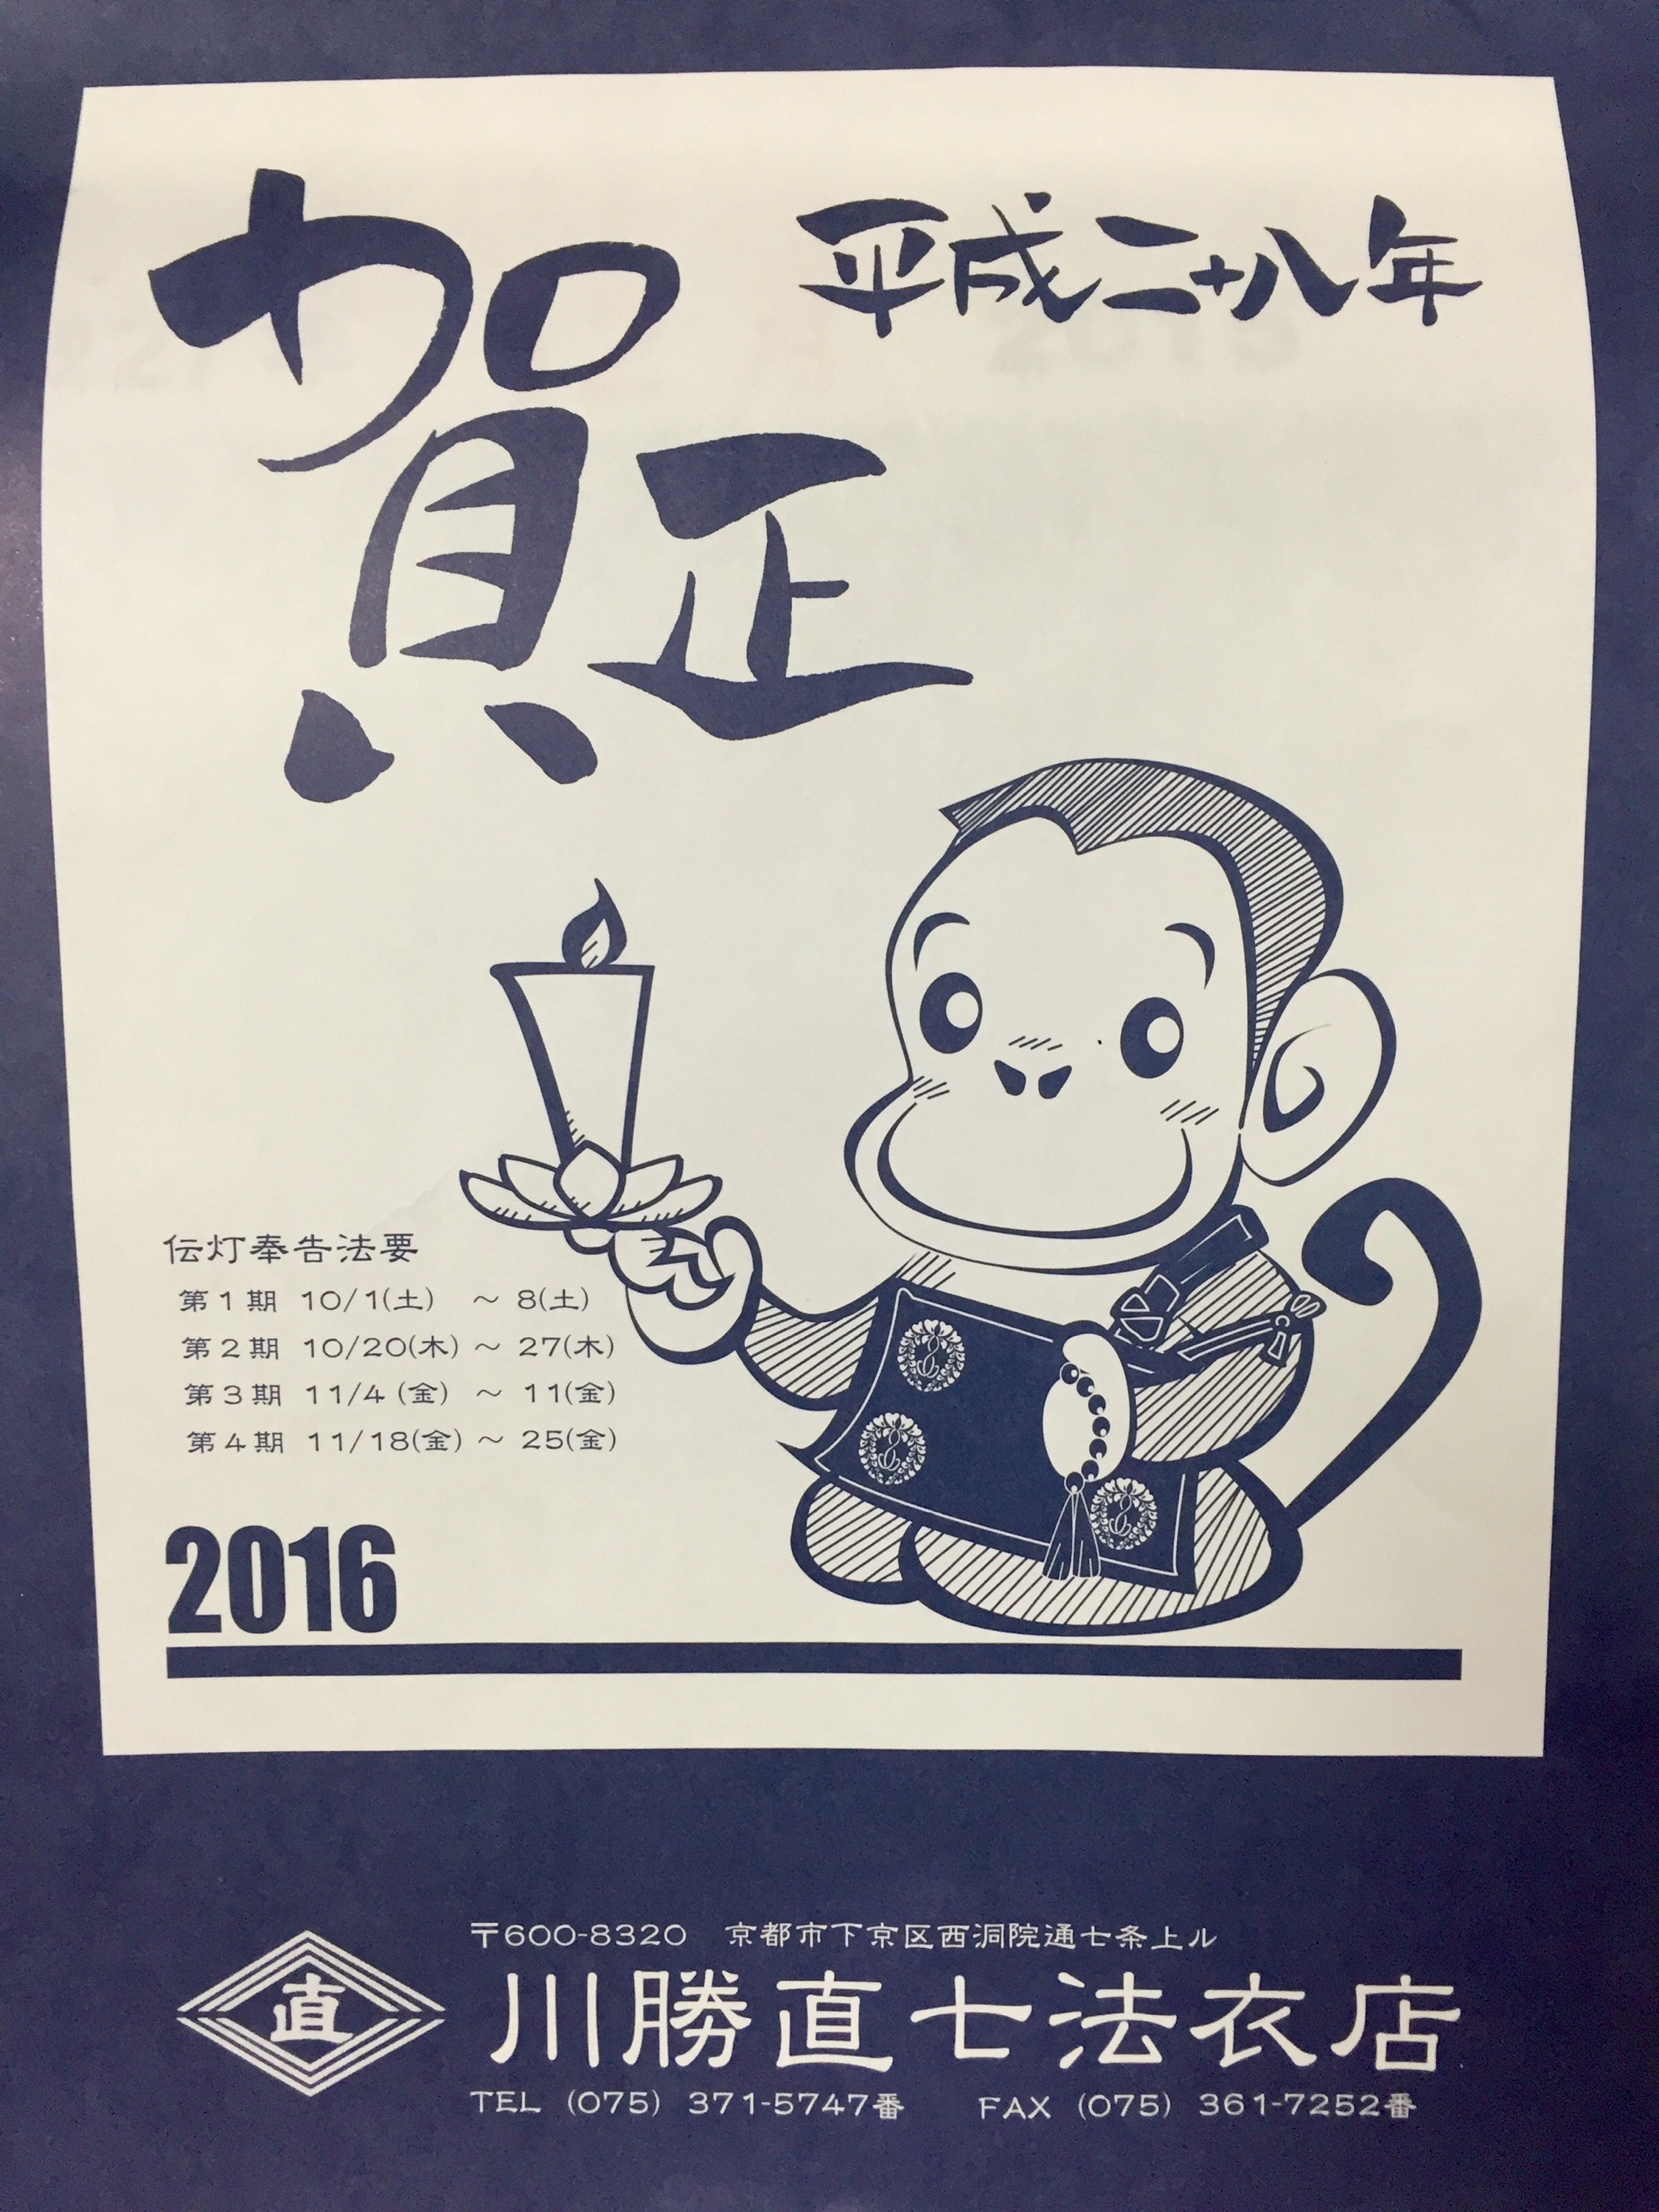 平成二十八年
賀正
伝灯奉告法要
第1期 10/1(土) ～ 8(土)
第2期 10/20(木) ～ 27(木)
第3期 11/4 (金) ～ 11(金)
第4期 11/18(金) ～ 25(金)
2016
〒600-8320 京都市下京区西洞院通七条上ル
直
川勝直七法衣店
TEL (075) 371-5747番 FAX (075) 361-7252番